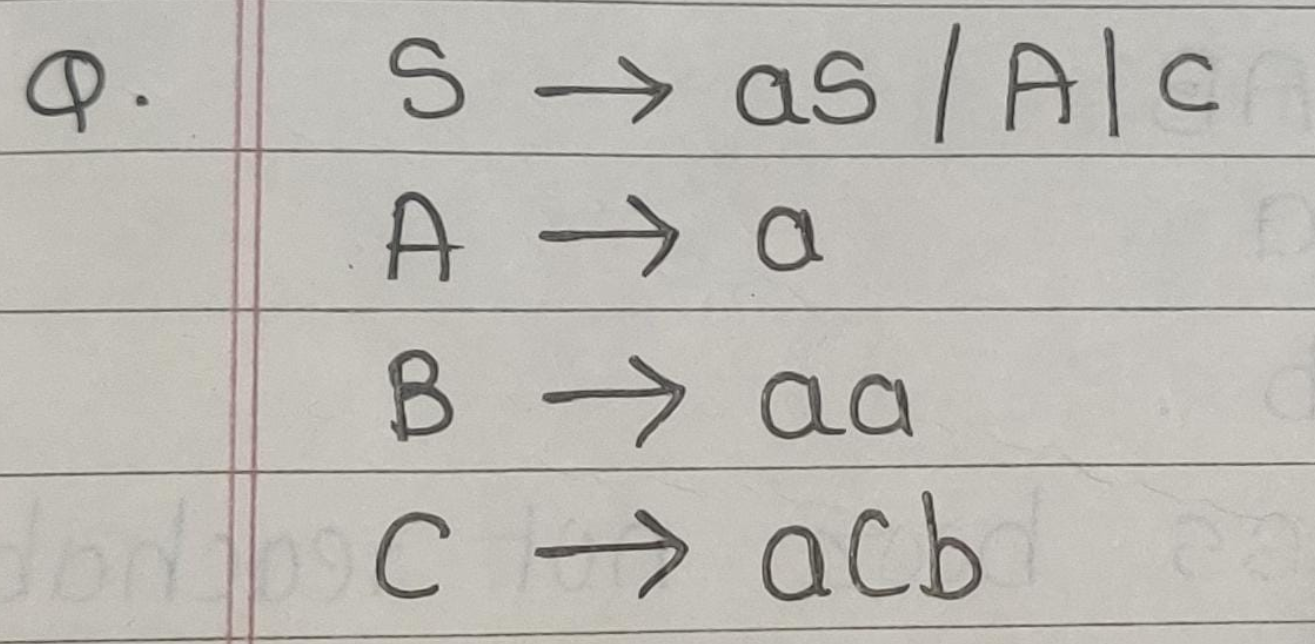 Q. S → aS / A | C
A → a
B → aa
C → aCb